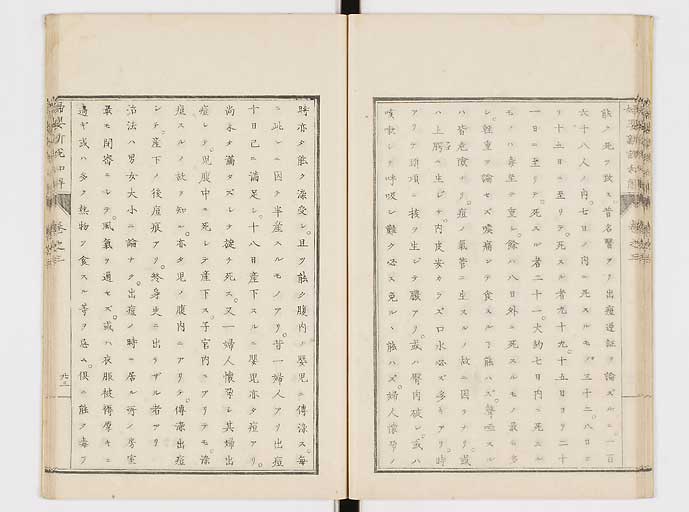 能ク死ヲ致ス。昔名醫アリ出痘逆証ヲ論ズルニ。一百
六十八人ノ内。七日ノ内ニ死スルモノ三十二。八日ヨ
リ十五日ニ至リテ。死スル者九十九。十五日ヨリ二十
一日ニ至リテ。死スル者二十一。大約七日内ニ死スル
モノハ毒至テ重シ。餘ハ八日外ニ死スルモノ最モ多
シ。軽重ヲ論セズ喉痛シテ食スルヿ能ハズ。聲啞スル
ハ皆危険ナリ。痘ノ氣管ニ生スルノ故ニ因ルナリ。或
ハ上腭ニ生シテ。内皮安カラズ。口水必ズ多キアリ。時
アリテ頭項ニ核ヲ生ジテ膿アリ。或ハ臀肉破レ。或ハ
咳嗽シテ呼吸シ難ク必ス免ルヽ能ハズ。婦人懐孕ノ
時亦タ能ク染受シ。且ヲ能ク腹内ノ嬰児ニ傳染ス。毎
ニ此レニ因テ半産スルモノアリ。昔一婦人アリ出痘
十日已ニ滿足シ。十八日産下スルニ嬰児亦タ痘アリ。
尚未タ滿タズシテ旋チ死ス。又一婦人懐孕シ其婦出
痘シテ。児腹中ニ死シテ産下ス。子宮内ニアリテモ。染
痘スルノ故ヲ知ル。亦タ児ノ腹内ニアリテ。傳染出痘
シテ。産下ノ後痘痕アリ。終身更ニ出ザル者アリ
治法ハ男女大小ニ論ナク。出痘ノ時ニ居ル所ノ房室
最モ閉密ニシテ。風氣ヲ通セズ。或ハ衣服被褥厚キニ
過ギ或ハ多ク熱物ヲ食スル等ヲ忌ム。倶ニ能ク毒ヲ
巻之三